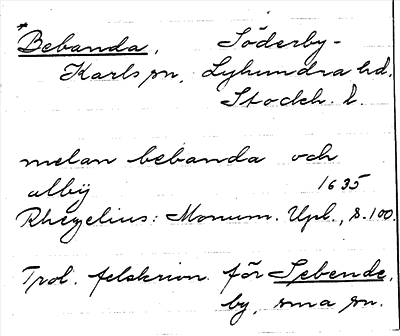 *Bebanda, Söderby-
Karls sn, Lyhundra hd.
Stockh. l.
melan bebanda och
alby 1635
Rhezelius: Monum. Upl., s. 100.
Trol. felskrivn. för Sebende,
by, sma sn.